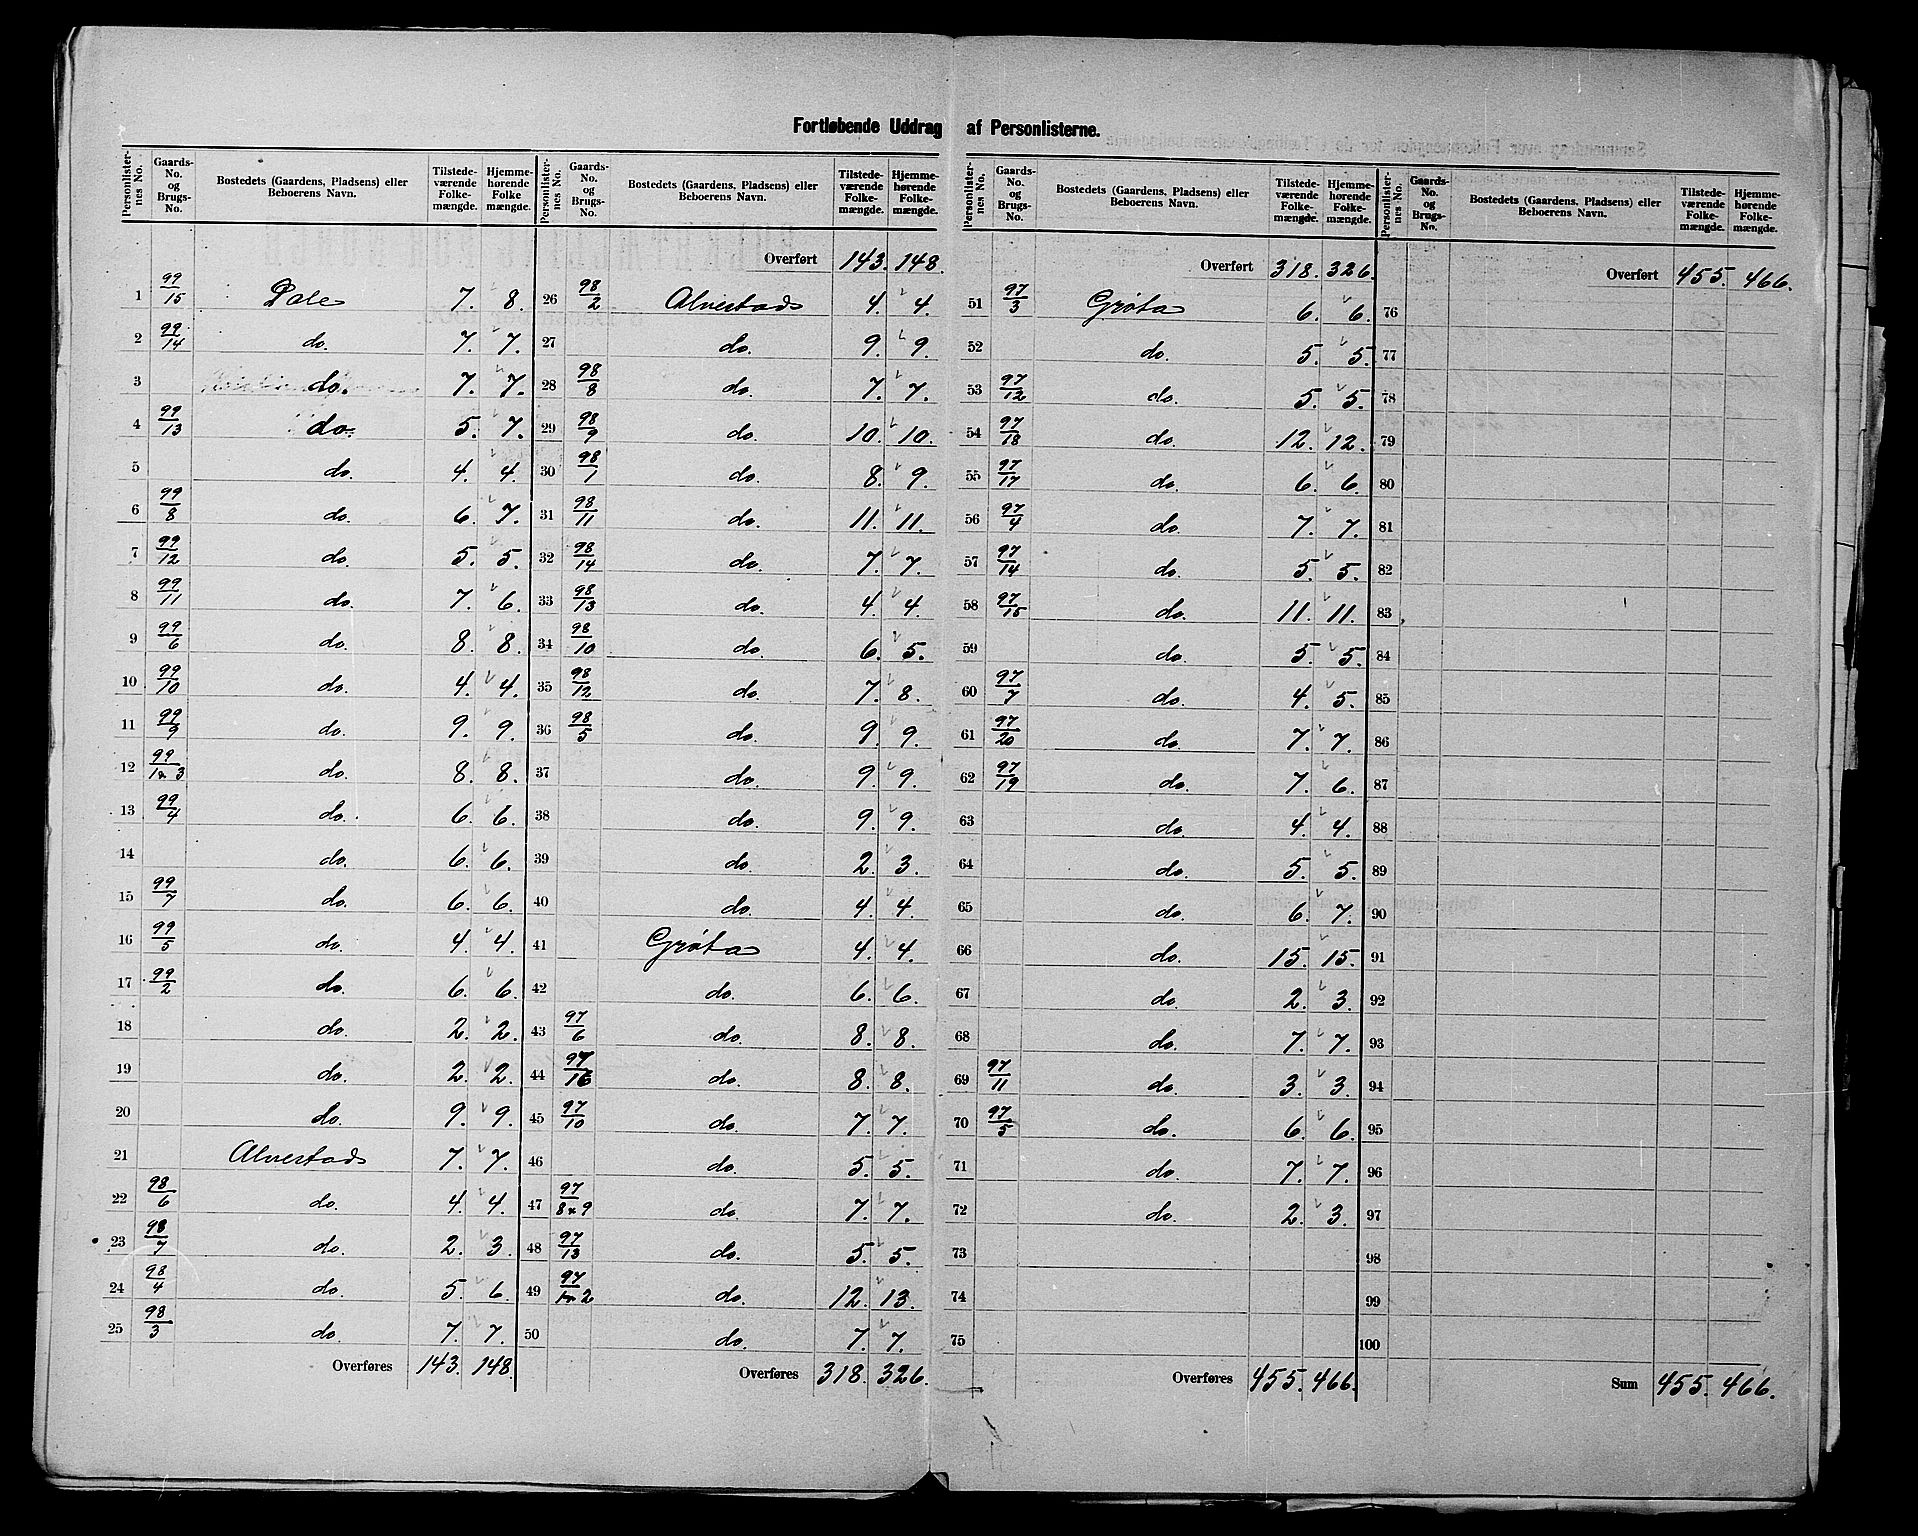 Fortløbende Uddrag af Personlisterne.
Personlister-nes No. | Gaards-No. og Brugs-No. | Bostedets (Gaardens, Pladsens) eller Beboerens Navn. | Tilstede-værende Folke-mængde. | Hjemme-hørende Folke-mængde.
1 99/15 Dale 7. 8.
2 99/14 do. 7. 7.
3 do. 7. 7.
4 99/13 do. 5. 7.
5 do. 4. 4.
6 99/8 do. 6. 7.
7 99/12 do. 5. 5.
8 99/11 do. 7. 6.
9 99/6 do. 8. 8.
10 99/10 do. 4. 4.
11 99/9 do. 9. 9.
12 99/1 & 3 do. 8. 8.
13 99/4 do. 6. 6.
14 do. 6. 6.
15 99/7 do. 6. 6.
16 99/5 do. 4. 4.
17 99/2 do. 6. 6.
18 do. 2. 2.
19 do. 2. 2.
20 do. 9. 9.
21 Alvestad 7. 7.
22 98/6 do. 4. 4.
23 98/7 do. 2. 3.
24 98/4 do. 5. 6.
25 98/3 do. 7. 7.
Overføres 143. 148.
Personlister-nes No. | Gaards-No. og Brugs-No. | Bostedets (Gaardens, Pladsens) eller Beboerens Navn. | Tilstede-værende Folke-mængde. | Hjemme-hørende Folke-mængde.
Overført 143. 148.
26 98/2 Alvestad 4. 4.
27 do. 9. 9.
28 98/8 do. 7. 7.
29 98/9 do. 10. 10.
30 98/1 do. 8. 9.
31 98/11 do. 11. 11.
32 98/14 do. 7. 7.
33 98/13 do. 4. 4.
34 98/10 do. 6. 5.
35 98/12 do. 7. 8.
36 98/5 do. 9. 9.
37 do. 9. 9.
38 do. 9. 9.
39 do. 2. 3.
40 do. 4. 4.
41 Grøta 4. 4.
42 do. 6. 6.
43 97/6 do. 8. 8.
44 97/16 do. 8. 8.
45 97/10 do. 7. 7.
46 do. 5. 5.
47 97/8 & 9 do. 7. 7.
48 97/13 do. 5. 5.
49 97/1 & 2 do. 12. 13.
50 do. 7. 7.
Overføres 318. 326.
Personlister-nes No. | Gaards-No. og Brugs-No. | Bostedets (Gaardens, Pladsens) eller Beboerens Navn. | Tilstede-værende Folke-mængde. | Hjemme-hørende Folke-mængde.
Overført 318. 326.
51 97/3 Grøta 6. 6.
52 do. 5. 5.
53 97/12 do. 5. 5.
54 97/18 do. 12. 12.
55 97/17 do. 6. 6.
56 97/4 do. 7. 7.
57 97/14 do. 5. 5.
58 97/15 do. 11. 11.
59 do. 5. 5.
60 97/7 do. 4. 5.
61 97/20 do. 7. 7.
62 97/19 do. 7. 6.
63 do. 4. 4.
64 do. 5. 5.
65 do. 6. 7.
66 do. 15. 15.
67 do. 2. 3.
68 do. 7. 7.
69 97/11 do. 3. 3.
70 97/5 do. 6. 6.
71 do. 7. 7.
72 do. 2. 3.
73
74
75
Overføres 455. 466.
Personlister-nes No. | Gaards-No. og Brugs-No. | Bostedets (Gaardens, Pladsens) eller Beboerens Navn. | Tilstede-værende Folke-mængde. | Hjemme-hørende Folke-mængde.
Overført 455. 466.
76
77
78
79
80
81
82
83
84
85
86
87
88
89
90
91
92
93
94
95
96
97
98
99
100
Sum 455. 466.